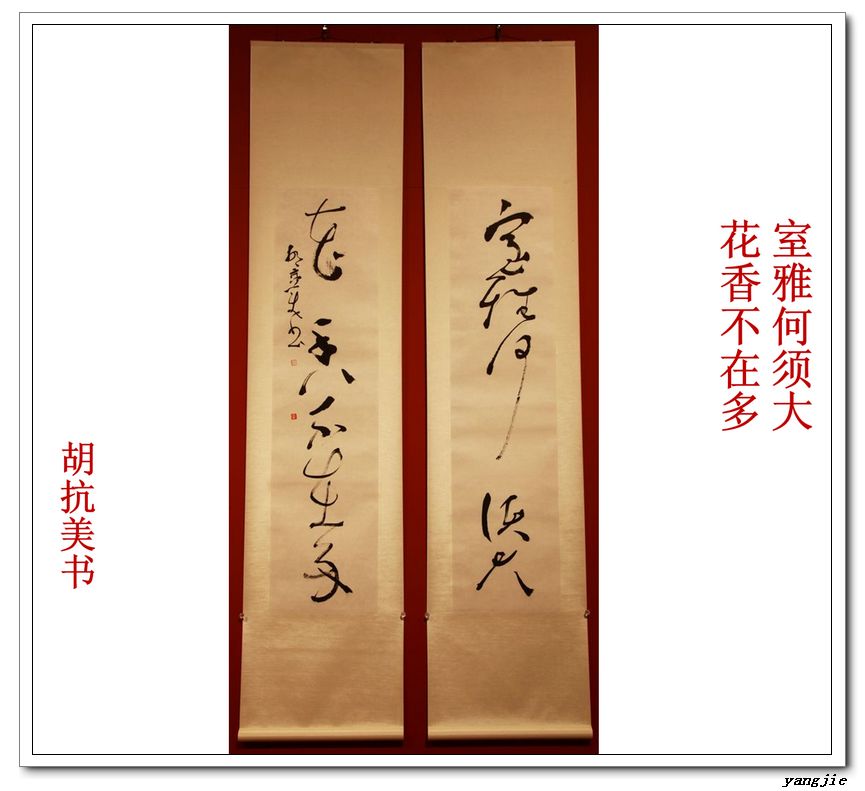 室雅何须大
花香不在多
室雅何须大
花香不在多
胡抗美书
胡抗美书
yangjie